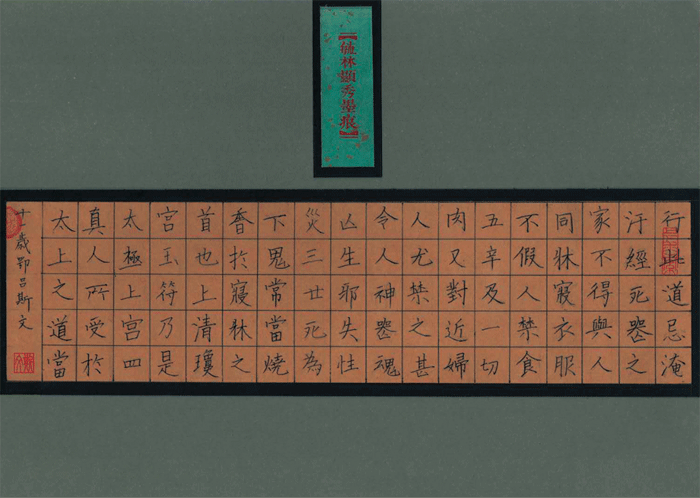 【林擷秀墨痕】
行此道忌淹
汙經死喪之
家不得與人
同牀寢衣服
不假人禁食
五辛及一切
肉又對近婦
人尤禁之甚
令人神喪魂
亾生邪失性
災三世死為
下鬼常當燒
香於寢牀之
首也上清瓊
宮玉符乃是
太極上宮四
真人所受於
太上之道當
十歲呂斯文